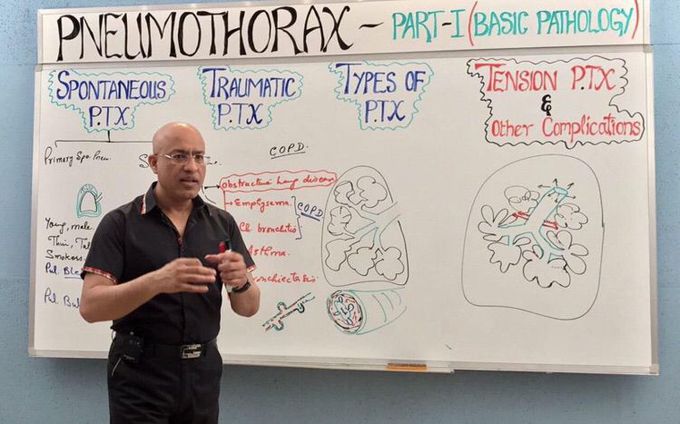 PNEUMOTHORAX - PART-I (BASIC PATHOLOGY)
SPONTANEOUS
P.TX
TRAUMATIC
P.TX
TYPES OF
P.TX
TENSION P.TX
&
Other Complications
Primary Spo. Pneu.
C.O.P.D.
Obstructive Lung disease
Emphysema
Ch bronchitis
COPD
Young, male
Thin,
Smokers
Pul.
Pul.